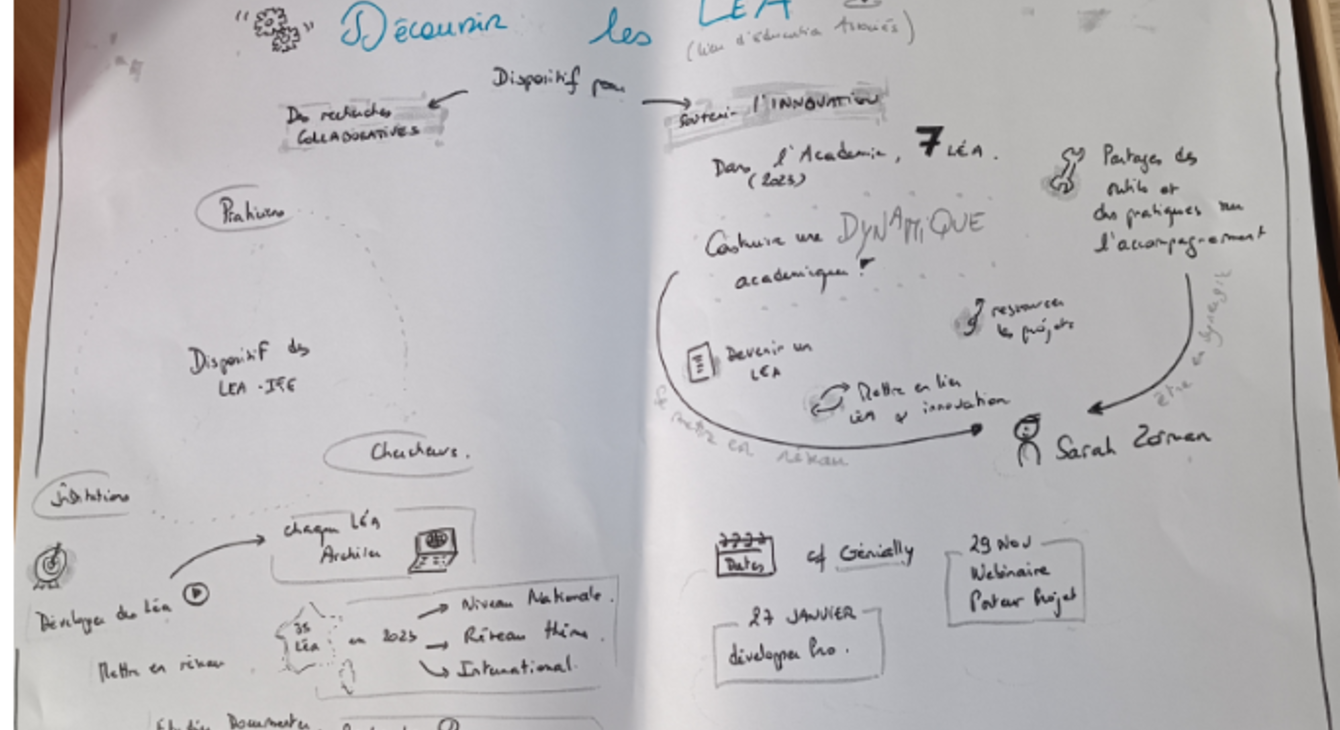 Découvrir les LÉA
(Lieu d'éducation Associés)
Dispositif pour
Des recherches
COLLABORATIVES
Soutenir l'INNOVATION
Dans l'Academie, 7 LÉA.
(2023)
Partages des
outils et
des pratiques sur
l'accompagnement
Praticiens
Construire une DYNAMIQUE
academique !
être en synergie
ressources
les projets
Devenir un
LEA
Mettre en lien
LEA & innovation
Se mettre en réseau
Sarah
Dispositif des
LEA - IFE
Chercheurs.
Institutions
chaque LéA
Développer des Léa
Mettre en réseau
35
LéA
en 2023
Niveau Nationale.
Réseau thém.
International.
Dates
cf Génially
29 NOV
Webinaire
Porteur Projet
27 JANVIER
développer Pro.
Documenter